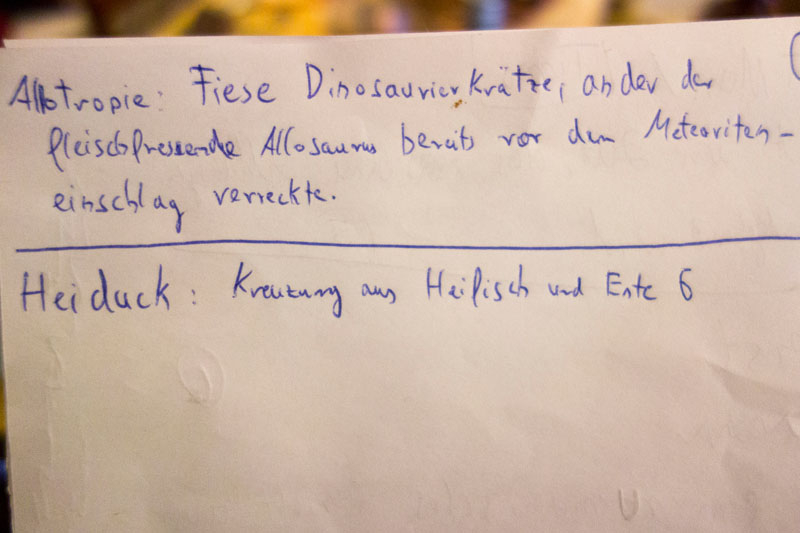 Allotropie: Fiese Dinosaurierkrätze, an der der
fleischfressende Allosaurus bereits vor dem Meteoriten-
einschlag verreckte.
Heiduck: Kreuzung aus Heifisch und Ente 6